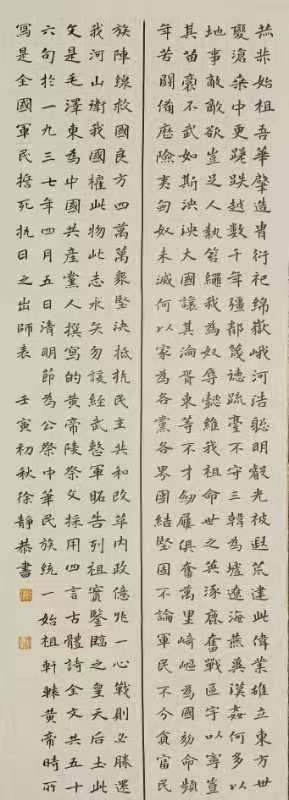 赫赫始祖吾華肇造胄衍祀綿嶽峨河浩聰明睿光被遐荒建此偉業雄立東方世
變滄桑中更蹉跌越數千年彊鄰蔑德琉臺不守三韓為墟遼海燕冀漢奸何多以
地事敵敵欲豈足人執笞繩我為奴辱懿維我祖命世之英涿鹿奮戰區宇以寧豈
其苗裔不武如斯泱泱大國讓其淪胥東等不才劍屨俱奮萬里崎嶇為國効命頻
年苦鬬備歷險夷匈奴未滅何以家為各黨各界團結堅固不論軍民不分貧富民
族陣線救國良方四萬萬眾堅決抵抗民主共和改革内政億兆一心戰則必勝還
我河山衛我國權此物此志永矢勿諼經武整軍昭告列祖實鑒臨之皇天后土此
文是毛澤東為中國共產黨人撰寫的黃帝陵祭文採用四言古體詩全文共五十
六句於一九三七年四月五日清明節為公祭中華民族統一始祖軒轅黃帝時所
寫是全國軍民誓死抗日之出師表 壬寅初秋徐靜恭書